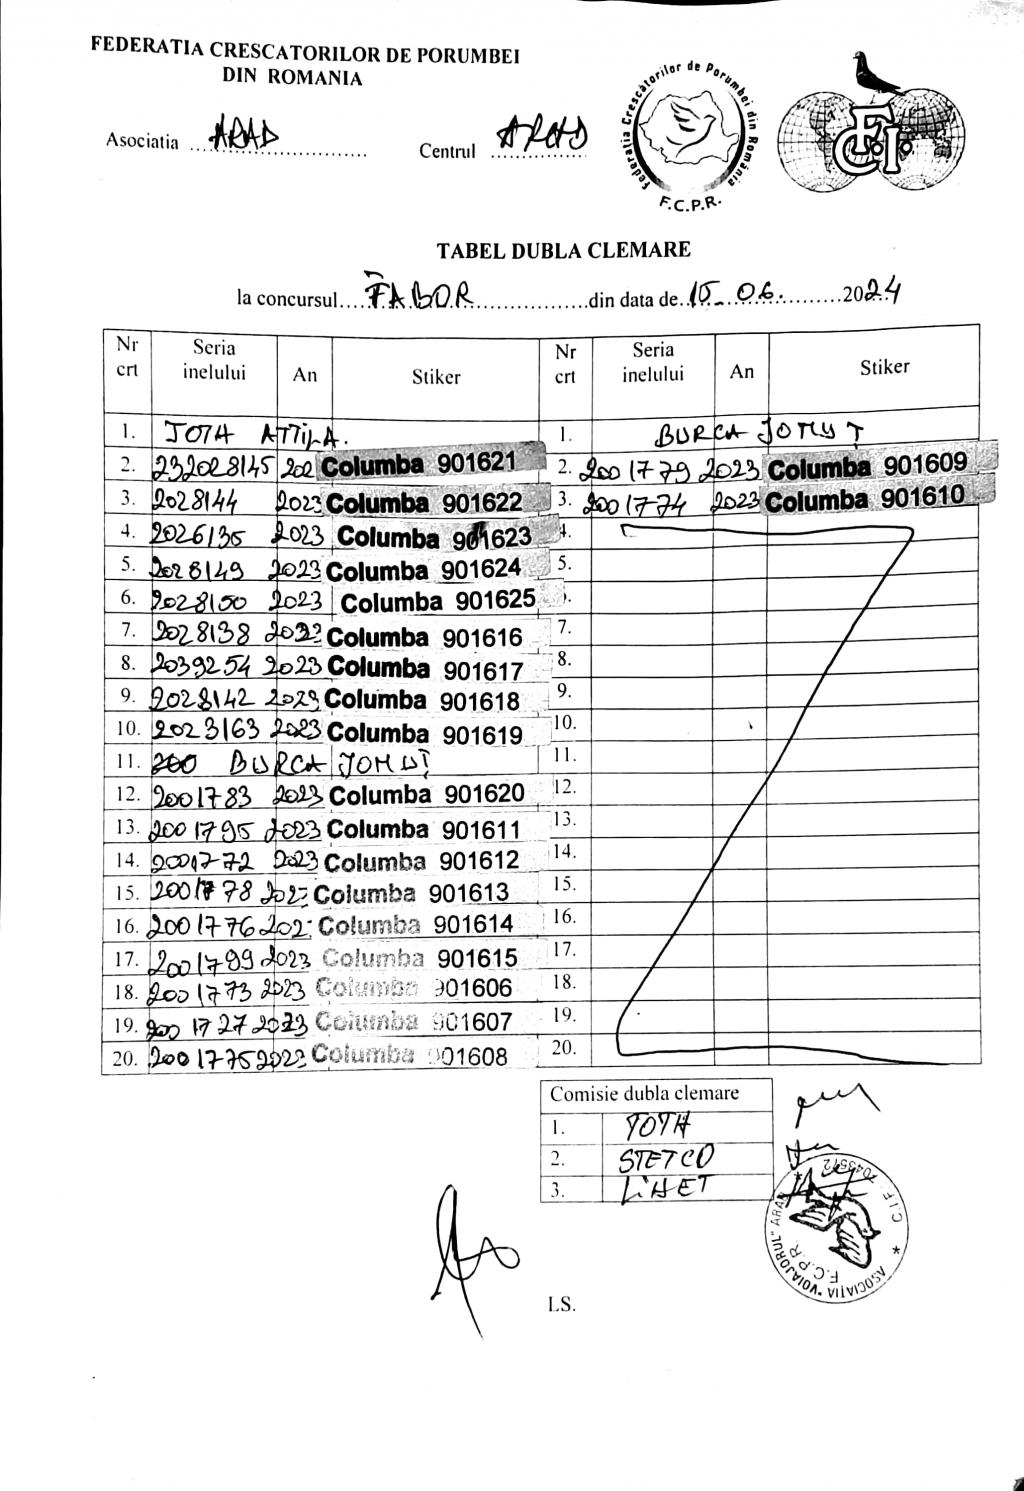 FEDERATIA CRESCATORILOR DE PORUMBEI
DIN ROMANIA
Asociatia ARAD
Centrul ARAD
Federatia Crescătorilor de Porumbei din România
F.C.P.R.
F.C.I.
TABEL DUBLA CLEMARE
la concursul TABOR din data de 15.06. 2024
Nr crt Seria inelului An Stiker Nr crt Seria inelului An Stiker
1. TOTH ATTILA. 1. BURCA IONUȚ
2. 232028145 202 Columba 901621 2. 2001779 2023 Columba 901609
3. 2028144 2023 Columba 901622 3. 2001774 2023 Columba 901610
4. 2026135 2023 Columba 901623 4.
5. 2028149 2023 Columba 901624 5.
6. 2028150 2023 Columba 901625
7. 2028138 2023 Columba 901616 7.
8. 2039254 2023 Columba 901617 8.
9. 2028142 2023 Columba 901618 9.
10. 2023163 2023 Columba 901619 10.
11. 200 BURCA IONUȚ 11.
12. 2001783 2023 Columba 901620 12.
13. 2001795 2023 Columba 901611 13.
14. 2001772 2023 Columba 901612 14.
15. 2001778 202 Columba 901613 15.
16. 2001776 202 Columba 901614 16.
17. 2001799 2023 Columba 901615 17.
18. 2001773 2023 Columba 901606 18.
19. 2001727 2023 Columba 901607 19.
20. 2001775 202 Columba 901608 20.
Comisie dubla clemare
1. TOTH
2. STETCO
3. LIHET
ASOCIATIA "VOIAJORUL" ARAD * C.I.F. 7045572 *
F.C.P.R.
LS.